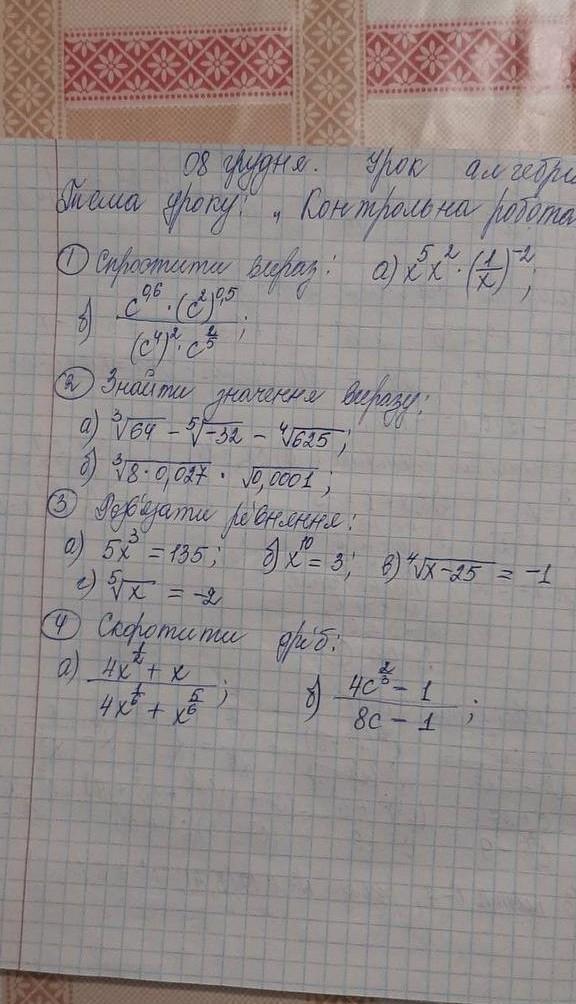 08 грудня. Урок алгебри
Тема уроку: „Контрольна робота
① Спростити вираз: а) x⁵x² · (1/x)⁻²;
б) (c^0,6 · (c²)^0,5) / ((c⁴)² · c^(2/5));
② Знайти значення виразу:
а) ³√64 – ⁵√-32 – ⁴√625;
б) ³√8·0,027 · √0,0001;
③ Розв'язати рівняння:
а) 5x³ = 135; б) x¹⁰ = 3; в) ⁴√x-25 = -1
г) ⁵√x = -2
④ Скоротити дріб:
а) (4x^(1/2) + x) / (4x^(1/6) + x^(5/6)); б) (4c^(2/3) – 1) / (8c – 1);